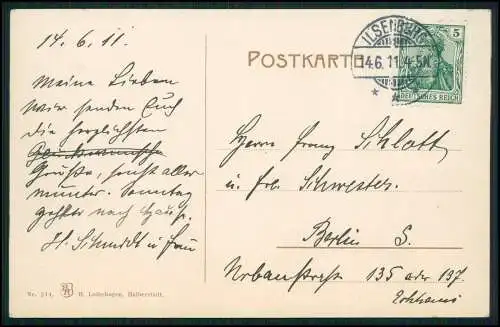 14. 6. 11.
Meine Lieben
Wir senden Euch
die herzlichsten
Glückwünsche
Grüße, sonst alles
munter. Sonntag
geht's nach Hause.
H. Schmidt u Frau
Nr. 214. H. Lederbogen, Halberstadt.
POSTKARTE
ILSENBURG
14.6.11.4-5N.
* *
5
DEUTSCHES REICH
Herrn Franz Schlott
u. frl. Schwester.
Berlin S.
Urbanstraße 135 oder 137.
Eckhaus